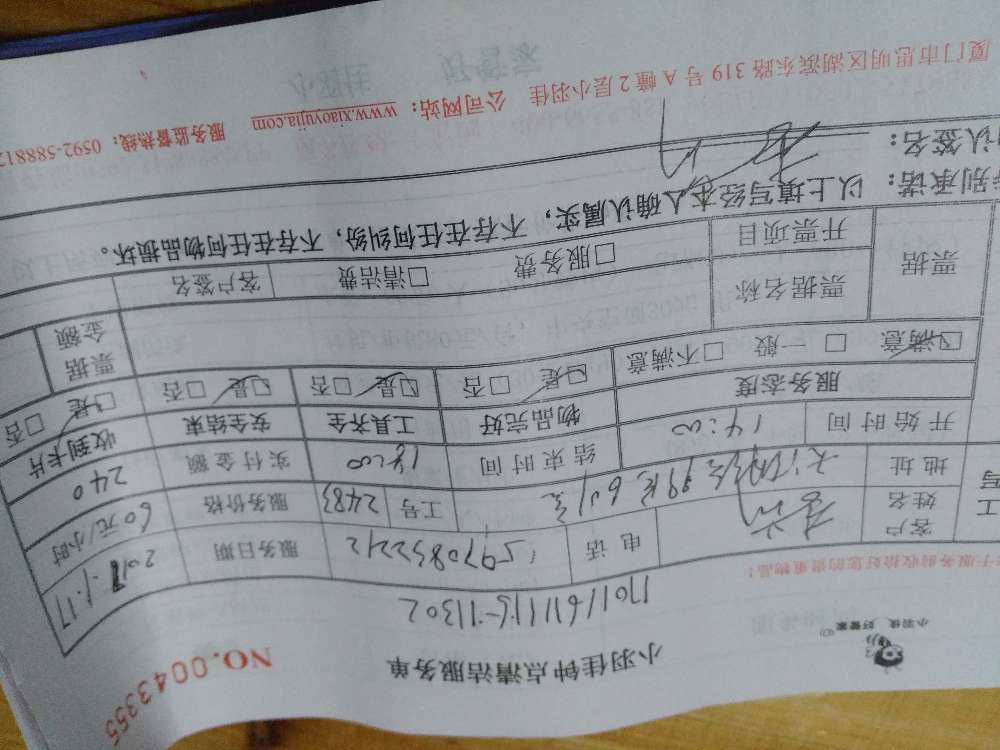 小羽佳钟点清洁服务单
NO.0043355
小羽佳，好管家
17011611115-11302
于服务前收拾好您的贵重物品！
客户姓名 电话 15970852242 服务日期 2017.1.17
工号 2483 服务价格 60元/小时
地址 实付金额 240
开始时间 14:00 结束时间 18:00 收到卡片
服务态度 物品完好 工具齐全 安全结束 □是 □否
□满意 □ 般 □不满意 □是 □否 □是 □否 □是 □否
票据 票据名称 票据金额
开票项目 □服务费 □清洁费 客户签名
别承诺：以上填写经本人确认属实，不存在任何纠纷，不存在任何物品损坏。
认签名：
厦门市思明区湖滨东路 319 号 A 幢 2 层小羽佳 公司网站：www.xiaoyujia.com 服务监督热线：0592-588812